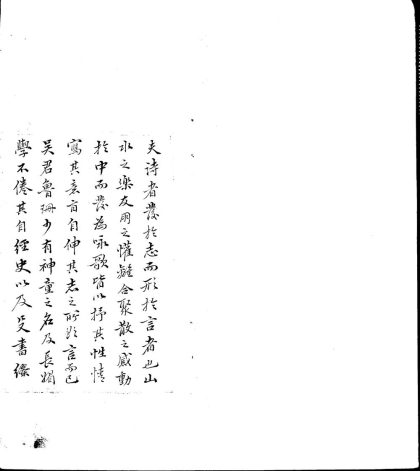 夫诗者發於志而形於言者也山
水之樂友朋之懽離合聚散之感動
於中而發為咏歌皆以抒其性情
寫其意旨自伸其志之所欲言而已
吳君魯珊少有神童之名及長嫺
學不倦其自經史以及